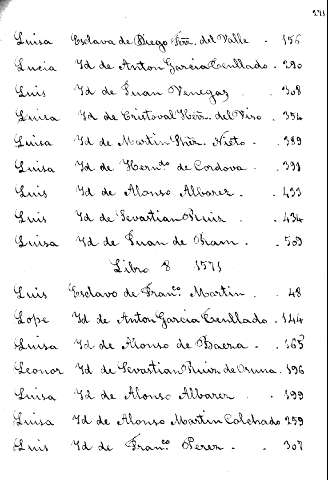 271
Luisa Esclava de Diego Frz. del Valle . 156
Lucia Id de Anton Garcia Cenllado . 290
Luis Id de Juan Venegaz . 308
Lucia Id de Cristoval Hrz. del Viso . 354
Luisa Id de Martin Frz. Nieto . 389
Luisa Id de Hern.do de Cordova . . 391
Luis Id de Alonso Albarez . . 433
Luis Id de Sevastian Ruiz . . 434
Luisa Id de Juan de . . 503
Libro 8 1571
Luis Esclavo de Fran.co Martin . . 48
Lope Id de Anton Garcia Cenllado . 144
Luisa Id de Alonso de Baeza . . 165
Leonor Id de Sevastian Ruiz de Osuna . 196
Luisa Id de Alonso Albarez . . 199
Luisa Id de Alonso Martin Colchado 259
Luis Id de Fran.co Perez . . 307